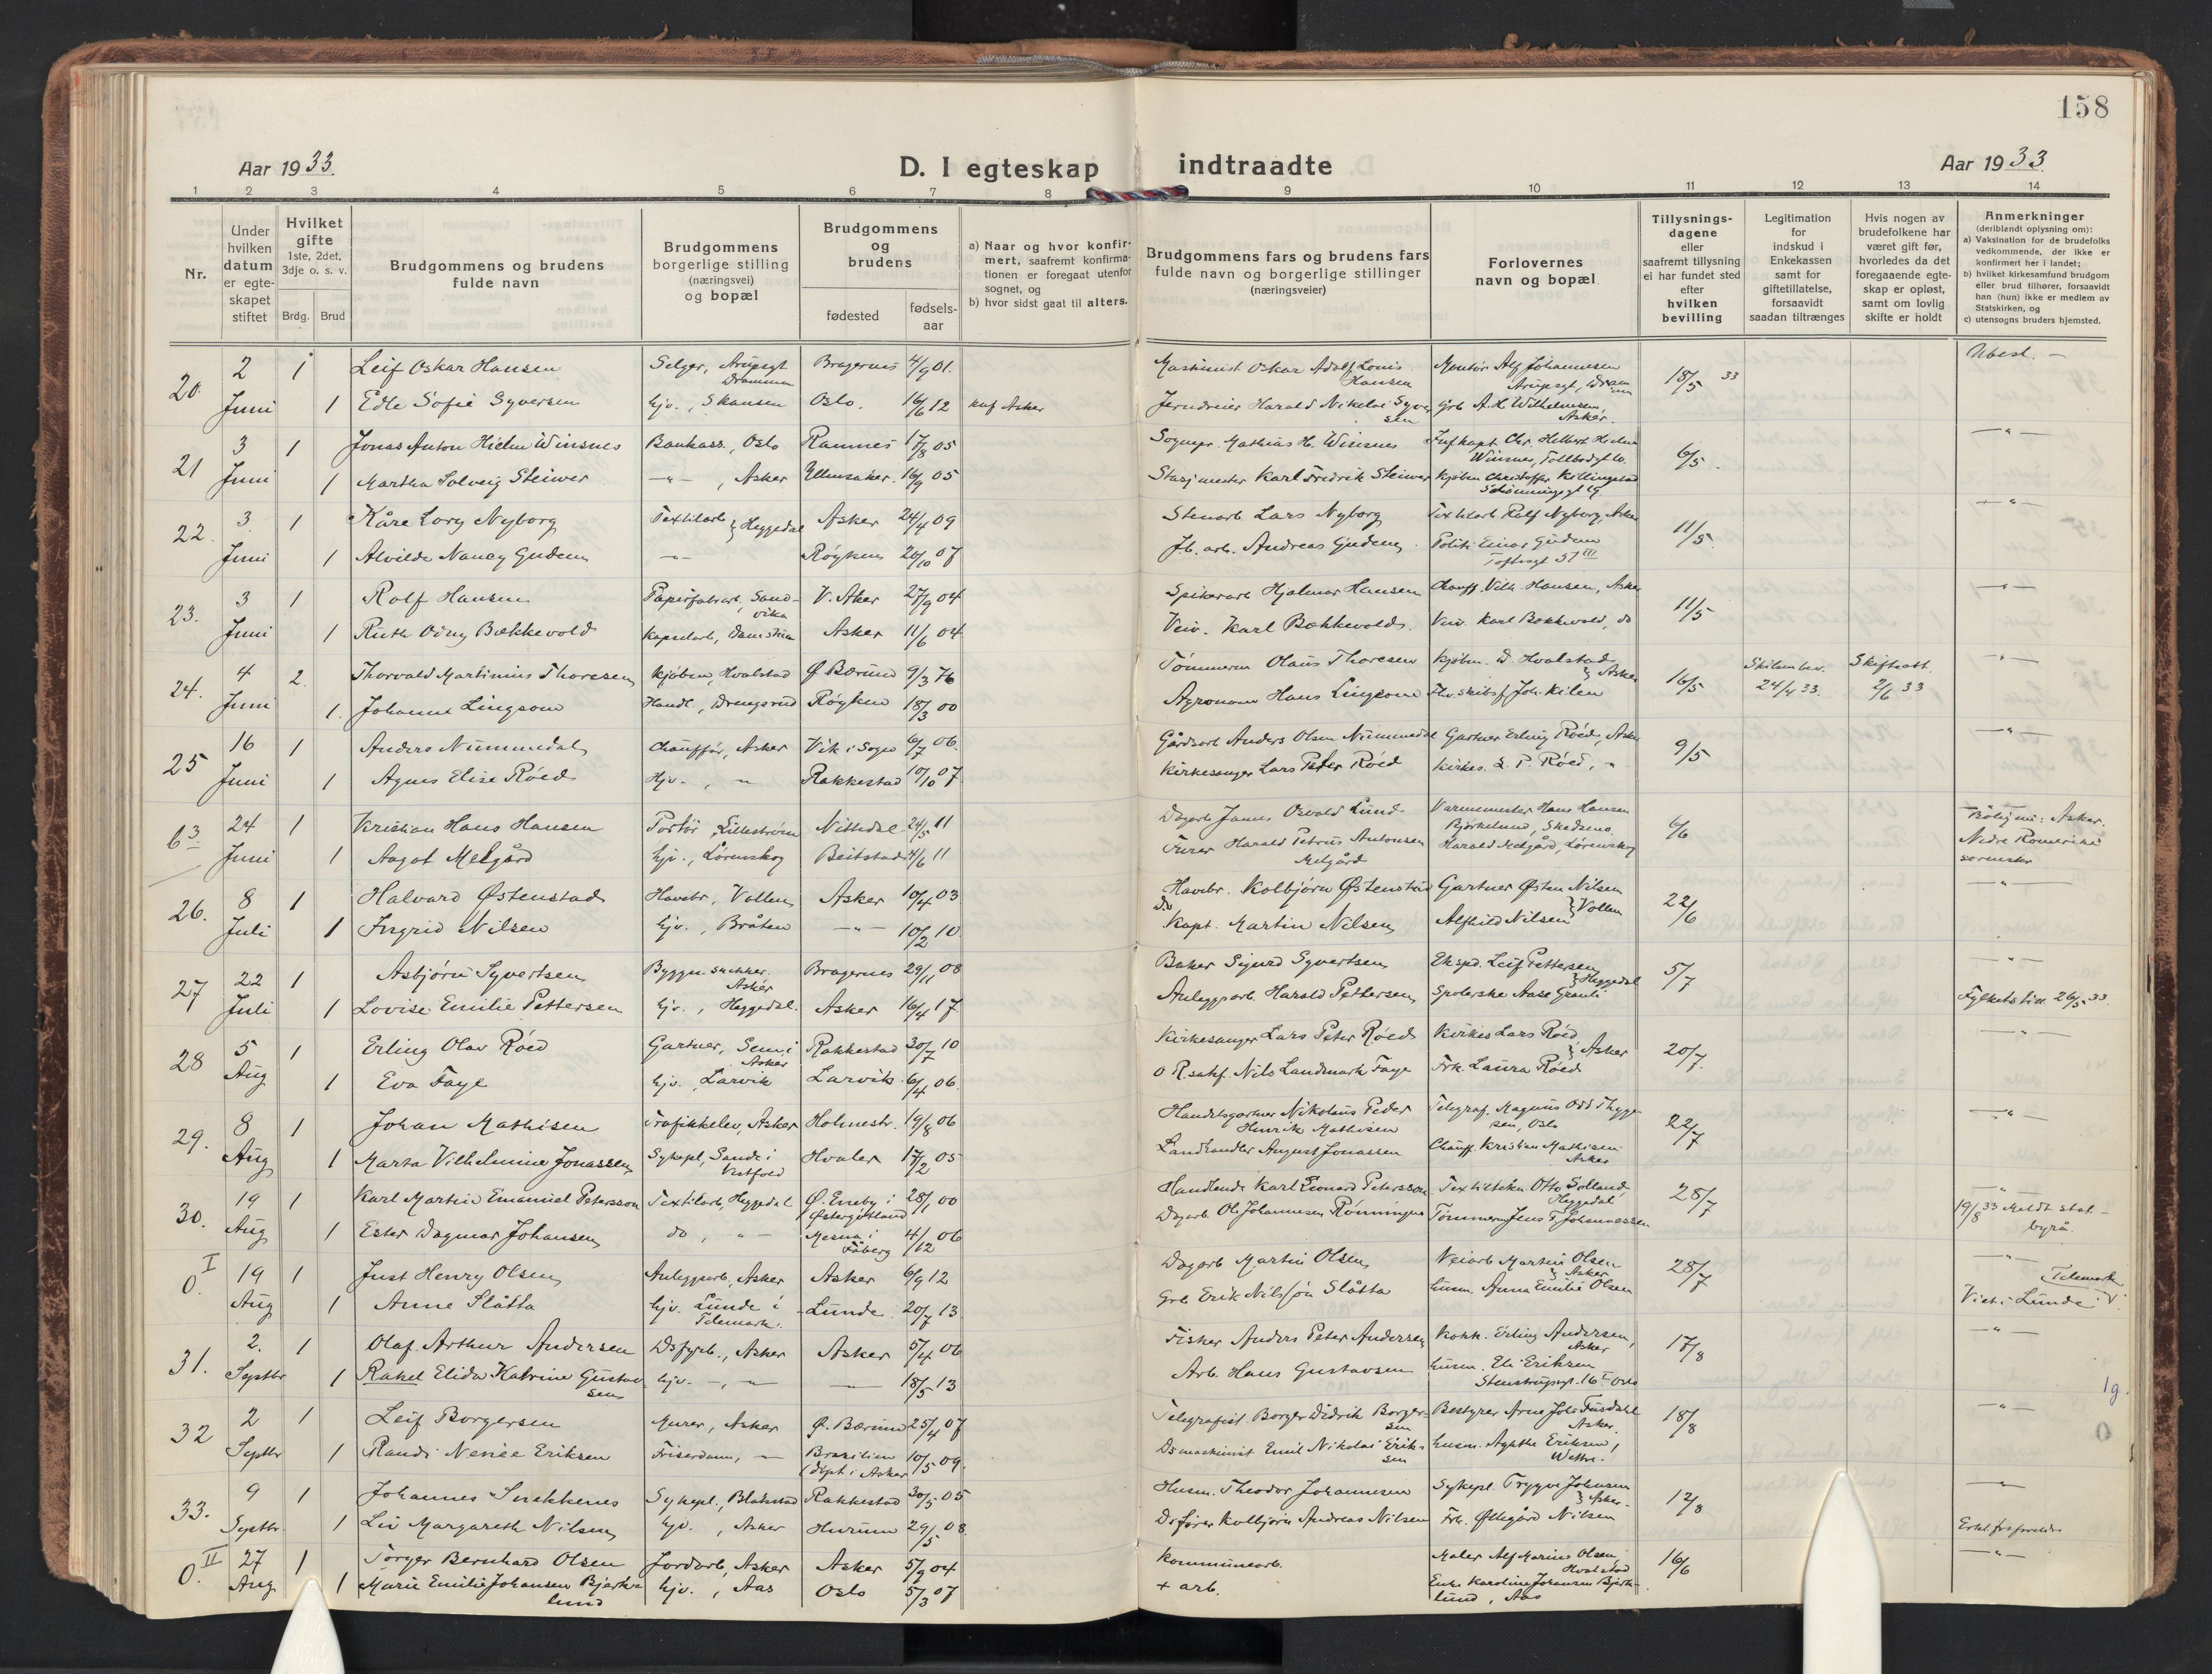 158
Aar 1933.
D. I egteskap indtraadte
Aar 1933.
1 2 3 4 5 6 7 8 9 10 11 12 13 14
Nr.
Under hvilken datum er egteskapet stiftet
Hvilket gifte 1ste, 2det, 3dje o. s. v.
Brdg. Brud
Brudgommens og brudens fulde navn
Brudgommens borgerlige stilling (næringsvei) og bopæl
Brudgommens og brudens
fødested
fødsels-aar
a) Naar og hvor konfirmert, saafremt konfirmationen er foregaat utenfor sognet, og
b) hvor sidst gaat til alters.
Brudgommens fars og brudens fars fulde navn og borgerlige stillinger (næringsveier)
Forlovernes navn og bopæl
Tillysningsdagene eller saafremt tillysning ei har fundet sted efter hvilken bevilling
Legitimation for indskud i Enkekassen samt for giftetillatelse, forsaavidt saadan tiltrænges
Hvis nogen av brudefolkene har været gift før, hvorledes da det foregaaende egteskap er opløst, samt om lovlig skifte er holdt
Anmerkninger (deriblandt oplysning om):
a) Vaksination for de brudefolks vedkommende, der ikke er konfirmert her i landet;
b) hvilket kirkesamfund brudgom eller brud tilhører, forsaavidt han (hun) ikke er medlem av Statskirken, og
c) utensogns bruders hjemsted.
20. 2 Juni 1 Leif Oskar Hansen Selger, Arupsgt Drammen Bragernes 4/9 01. Maskinist Oskar Adolf Louis Hansen Montør Alf Johannesen Arupsgt, Drammen 18/5 33 Ubest. —
1 Edle Sofie Syversen hjv., Skansen Oslo. 16/6 12 knf Asker Jerndreier Harald Nikolai Syversen Grb A. H. Wilhelmsen, Asker.
21 3 Juni 1 Jonas Anton Hielm Winsnes Bankass., Oslo Ramnes 17/8 05 Sognepr. Mathias H. Winsnes Inf kapt. Chr. Hielm Winsnes, Tollbodgt 6/5. — " —
1 Martha Solveig Steiwer — " —, Asker Ullensaker. 16/9 05 Stasj mester Karl Fredrik Steiwer Kjøbm Christoffer Killingstad Schönningsgt 19
22. 3. Juni 1 Kåre Lory Nyborg Textilarb } Heggedal Asker 24/4 09 Stenarb Lars Nyborg Textilarb Rolf Nyborg, Asker 11/5. — " —
1 Alvilde Nancy Gudem — " — Røyken 20/10 07 Jb. arb. Andreas Gudem. Politi Einar Gudem Toftesgt 51 III
23. 3 Juni 1 Rolf Hansen Papirfabrarb, Sandvika V. Aker 27/9 04 Spikerarb Hjalmar Hansen Chauff. Vilh. Hansen, Asker 11/5 — " —
1 Ruth Odny Bækkevold Kapselarb, Damstua Asker 11/6 04 Veiv. Karl Bækkevold. Veiv. Karl Bækkevold, do
24. 4 Juni 2. Thorvald Martinius Thoresen Kjøbm, Hvalstad Ø Bærum 9/3 76 Tømmerm Olaus Thoresen Kjøbm. D. Hvalstad } Asker 16/5 Skilsm bev. 24/4 33. Skifteatt. 2/6 33 — " —
1. Johanne Lingsom Handl., Drengsrud Røyken 18/3 00 Agronom Hans Lingsom Fhv. skibsf Joh. Kilen
25 16 Juni 1 Anders Nummedal Chauffør, Asker Vik i Sogn 6/7 06. Gårdsarb Anders Olsen Nummedal Gartner Erling Røed, Asker 9/5 — " —
1 Agnes Elise Røed Hjv., " Rakkestad 10/10 07. Kirkesanger Lars Peter Røed Kirkes. L. P. Røed, "
63. 24 Juni 1 Kristian Hans Hansen Portør, Lillestrøm Nittedal 24/5 11 Dagarb James Osvald Lund. Varmemester Hans Hansen Bjørkelund, Skedsmo. 6/6 Asker. Nedre Romerike sorenskr
1 Aagot Melgård hjv., Lørenskog Beitstad 4/6 11 Furer Harald Petrus Antonsen Melgård Harald Melgård, Lørenskog
26. 8 Juli 1 Halvard Østenstad Havebr., Vollen Asker 10/4 03 Havebr. Kolbjørn Østenstad Gartner Østen Nilsen } Vollen 22/6 — " —
1 Ingrid Nilsen hjv., Bråten — " — 10/2 10. Kapt. Martin Nilsen Alfhild Nilsen
27 22 Juli 1 Asbjørn Syvertsen Byggn. snekker. Asker Bragernes 29/11 08 Baker Sigurd Syvertsen Eksped. Leif Pettersen } Heggedal 5/7 — " —
1 Lovise Emilie Pettersen hjv., Heggedal. Asker 16/4 17 Anleggsarb. Harald Pettersen Spolerske Aase Granli Fylkets till. 26/5 33.
28 5 Aug 1 Erling Olav Røed Gartner, Sem i Asker Rakkestad 30/7 10 Kirkesanger Lars Peter Røed Kirkes Lars Røed } Asker 20/7. — " —
1 Eva Faye hjv. Larvik Larvik 6/4 06. O. R.sakf. Nils Landmark Faye Frk. Laura Røed
29. 8 Aug 1 Johan Mathisen Trafikkelev, Asker Holmestr. 19/8 06 Handelsgartner Nikolaus Peder Henrik Mathisen Telegraf. Magnus Odd Thygesen, Oslo 22/7 — " —
1 Marta Vilhelmine Jonassen Sykepl, Sande i Vestfold Hvaler 17/2 05 Landhandler August Jonassen Chauff. Kristian Mathisen Asker
30. 19 Aug 1 Karl Martin Emanuel Petersson Textilarb, Heggedal Ø. Eneby i Østergötland 28/1 00 Handlende Karl Leonard Petersson Textiltekn. Otto Solland Heggedal 28/7 — " —
1 Ester Dagmar Johansen do, — " — Mesna i Fåberg 4/12 06 Dagarb. Ole Johannesen Rønningen Tømmerm Jens F. Johannessen 19/8 33 Meldt stat. byrå.
0. I 19 Aug 1 Just Henry Olsen Anleggsarb, Asker Asker 6/9 12 Dagarb Martin Olsen Veiarb Martin Olsen } Asker 28/7 — " —
1 Anne Slåtta hjv. Lunde i Telemark. Lunde 20/7 13. Grb Erik Nilsson Slåtta husm. Anna Emilie Olsen Viet i Lunde i Telemark
31. 2. Septbr 1 Olaf Arthur Andersen Dsfyrb., Asker Asker 5/4 06 Fisker Anders Peter Andersen Kokk. Erling Andersen, Asker 17/8 — " —
1 Rakel Elida Katrine Gustavsen hjv. —, — — " — 18/5 13 Arb. Hans Gustavsen husm. Eli Eriksen Stenstrupsgt. 16 I Oslo
1g.
32 2 Septbr 1 Leif Borgersen Murer, Asker Ø. Bærum 25/4 07 Telegrafist. Borger Didrik Borgersen Bestyrer Arne Joh. Fusdahl Asker. 18/8 — " —
1 Randi Nenee Eriksen Friserdame, — Brasilien (døpt i Asker 10/5 09. Ds maskinist Emil Nikolai Eriksen husm. Agathe Eriksen, Wettre.
0
33. 9 Septbr. 1 Johannes Snekkenes Sykepl., Blakstad Rakkestad 30/5 05 Husm. Theodor Johannesen Sykepl. Trygve Johnsen } Asker. 12/8 — " —
1 Liv Margareth Nilsen hjv., Asker Hurum 29/5 08. Ds fører Kolbjørn Andreas Nilsen Frk. Øllegård Nilsen
0. II 27 Aug 1 Torger Bernhard Olsen Jordarb, Asker Asker 5/9 04 Kommunearb. Maler Alf Marius Olsen, Hvalstad 16/6 — " —
1 Marie Emilie Johansen Bjerkelund hjv., Aas Oslo 5/3 07 + arb. Enke Karoline Johansen Bjerkelund, Aas